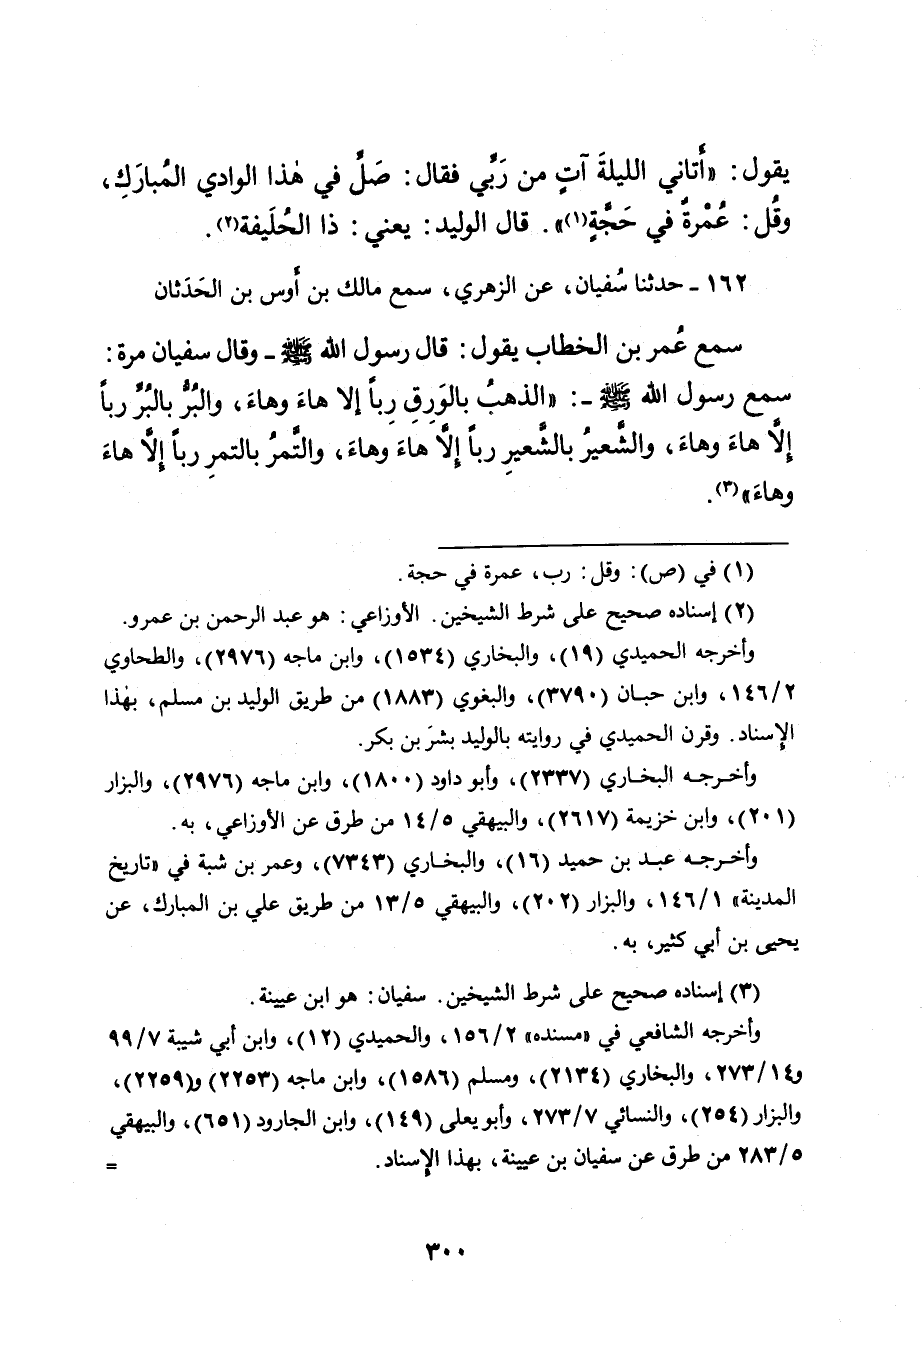 يقول: «أَتاني الليلةَ آتٍ من رَبِّي فقال: صَلِّ في هٰذا الوادي المُبارَكِ،
وقُل: عُمْرةٌ في حَجَّةٍ(١)». قال الوليد: يعني: ذا الحُلَيفة(٢).
١٦٢ ـ حدثنا سُفيان، عن الزهري، سمع مالك بن أَوس بن الحَدَثان
سمع عُمر بن الخطاب يقول: قال رسول الله ﷺ ـ وقال سفيان مرة:
سمع رسول الله ﷺ ـ: «الذهبُ بالوَرِقِ رِباً إلا هاءَ وهاءَ، والبُرُّ بالبُرِّ رباً
إِلَّا هاءَ وهاءَ، والشَّعيرُ بالشَّعيرِ رباً إِلَّا هاءَ وهاءَ، والتَّمرُ بالتمرِ رباً إِلَّا هاءَ
وهاءَ»(٣).
(١) في (ص): وقل: رب، عمرة في حجة.
(٢) إسناده صحيح على شرط الشيخين. الأوزاعي: هو عبد الرحمن بن عمرو.
وأخرجه الحميدي (١٩)، والبخاري (١٥٣٤)، وابن ماجه (٢٩٧٦)، والطحاوي
١٤٦/٢، وابن حبان (٣٧٩٠)، والبغوي (١٨٨٣) من طريق الوليد بن مسلم، بهٰذا
الإسناد. وقرن الحميدي في روايته بالوليد بشرَ بن بكر.
وأخرجه البخاري (٢٣٣٧)، وأبو داود (١٨٠٠)، وابن ماجه (٢٩٧٦)، والبزار
(٢٠١)، وابن خزيمة (٢٦١٧)، والبيهقي ١٤/٥ من طرق عن الأوزاعي، به.
وأخرجه عبد بن حميد (١٦)، والبخاري (٧٣٤٣)، وعمر بن شبة في «تاريخ
المدينة» ١٤٦/١، والبزار (٢٠٢)، والبيهقي ١٣/٥ من طريق علي بن المبارك، عن
يحيى بن أبي كثير، به.
(٣) إسناده صحيح على شرط الشيخين. سفيان: هو ابن عيينة.
وأخرجه الشافعي في «مسنده» ١٥٦/٢، والحميدي (١٢)، وابن أبي شيبة ٩٩/٧
و٢٧٣/١٤، والبخاري (٢١٣٤)، ومسلم (١٥٨٦)، وابن ماجه (٢٢٥٣) و(٢٢٥٩)،
والبزار (٢٥٤)، والنسائي ٢٧٣/٧، وأبو يعلى (١٤٩)، وابن الجارود (٦٥١)، والبيهقي
٢٨٣/٥ من طرق عن سفيان بن عيينة، بهذا الإسناد. =
٣٠٠